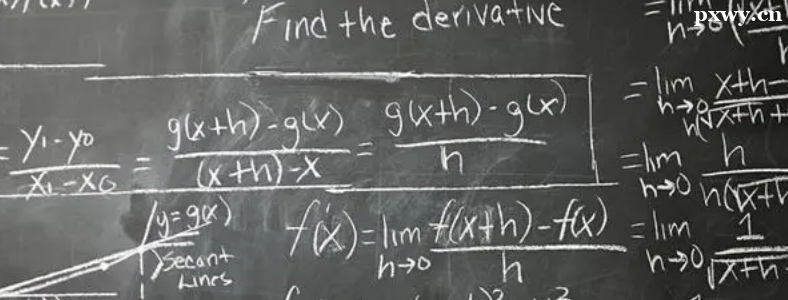 Find the derivative
pxwy.cn
= y₁-y₀ / x₁-x₀ = g(x+h)-g(x) / (x+h)-x = g(x+h)-g(x) / h
y=g(x)
secant
Lines
f'(x)=lim h→0 f(x+h)-f(x) / h
=lim h→0
=lim h→0 x+h- / h(√x+h+
=lim h→0 h / h(√x+h
=lim h→0 1 / √x+h